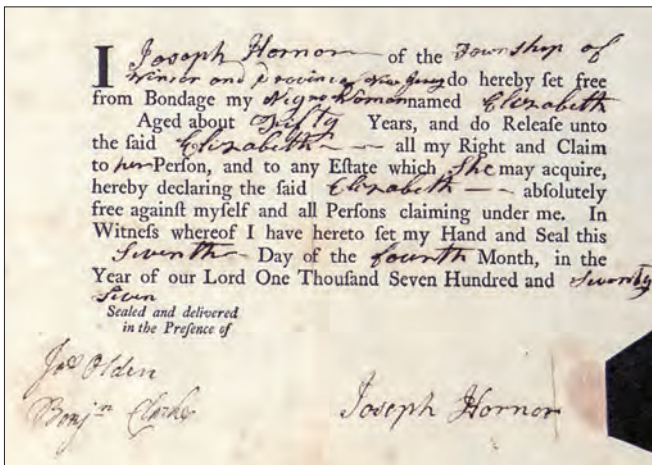 I Joseph Hornor of the Township of
Winsor and Province of New Jersey do hereby ſet free
from Bondage my Negro Woman named Elizabeth
Aged about Fifty Years, and do Releaſe unto
the ſaid Elizabeth all my Right and Claim
to her Perſon, and to any Eſtate which She may acquire,
hereby declaring the ſaid Elizabeth abſolutely
free againſt myſelf and all Perſons claiming under me. In
Witneſs whereof I have hereto ſet my Hand and Seal this
Seventh Day of the fourth Month, in the
Year of our Lord One Thouſand Seven Hundred and Seventy
Seven
Sealed and delivered
in the Preſence of
Jos Olden
Benjn Clarke
Joseph Hornor